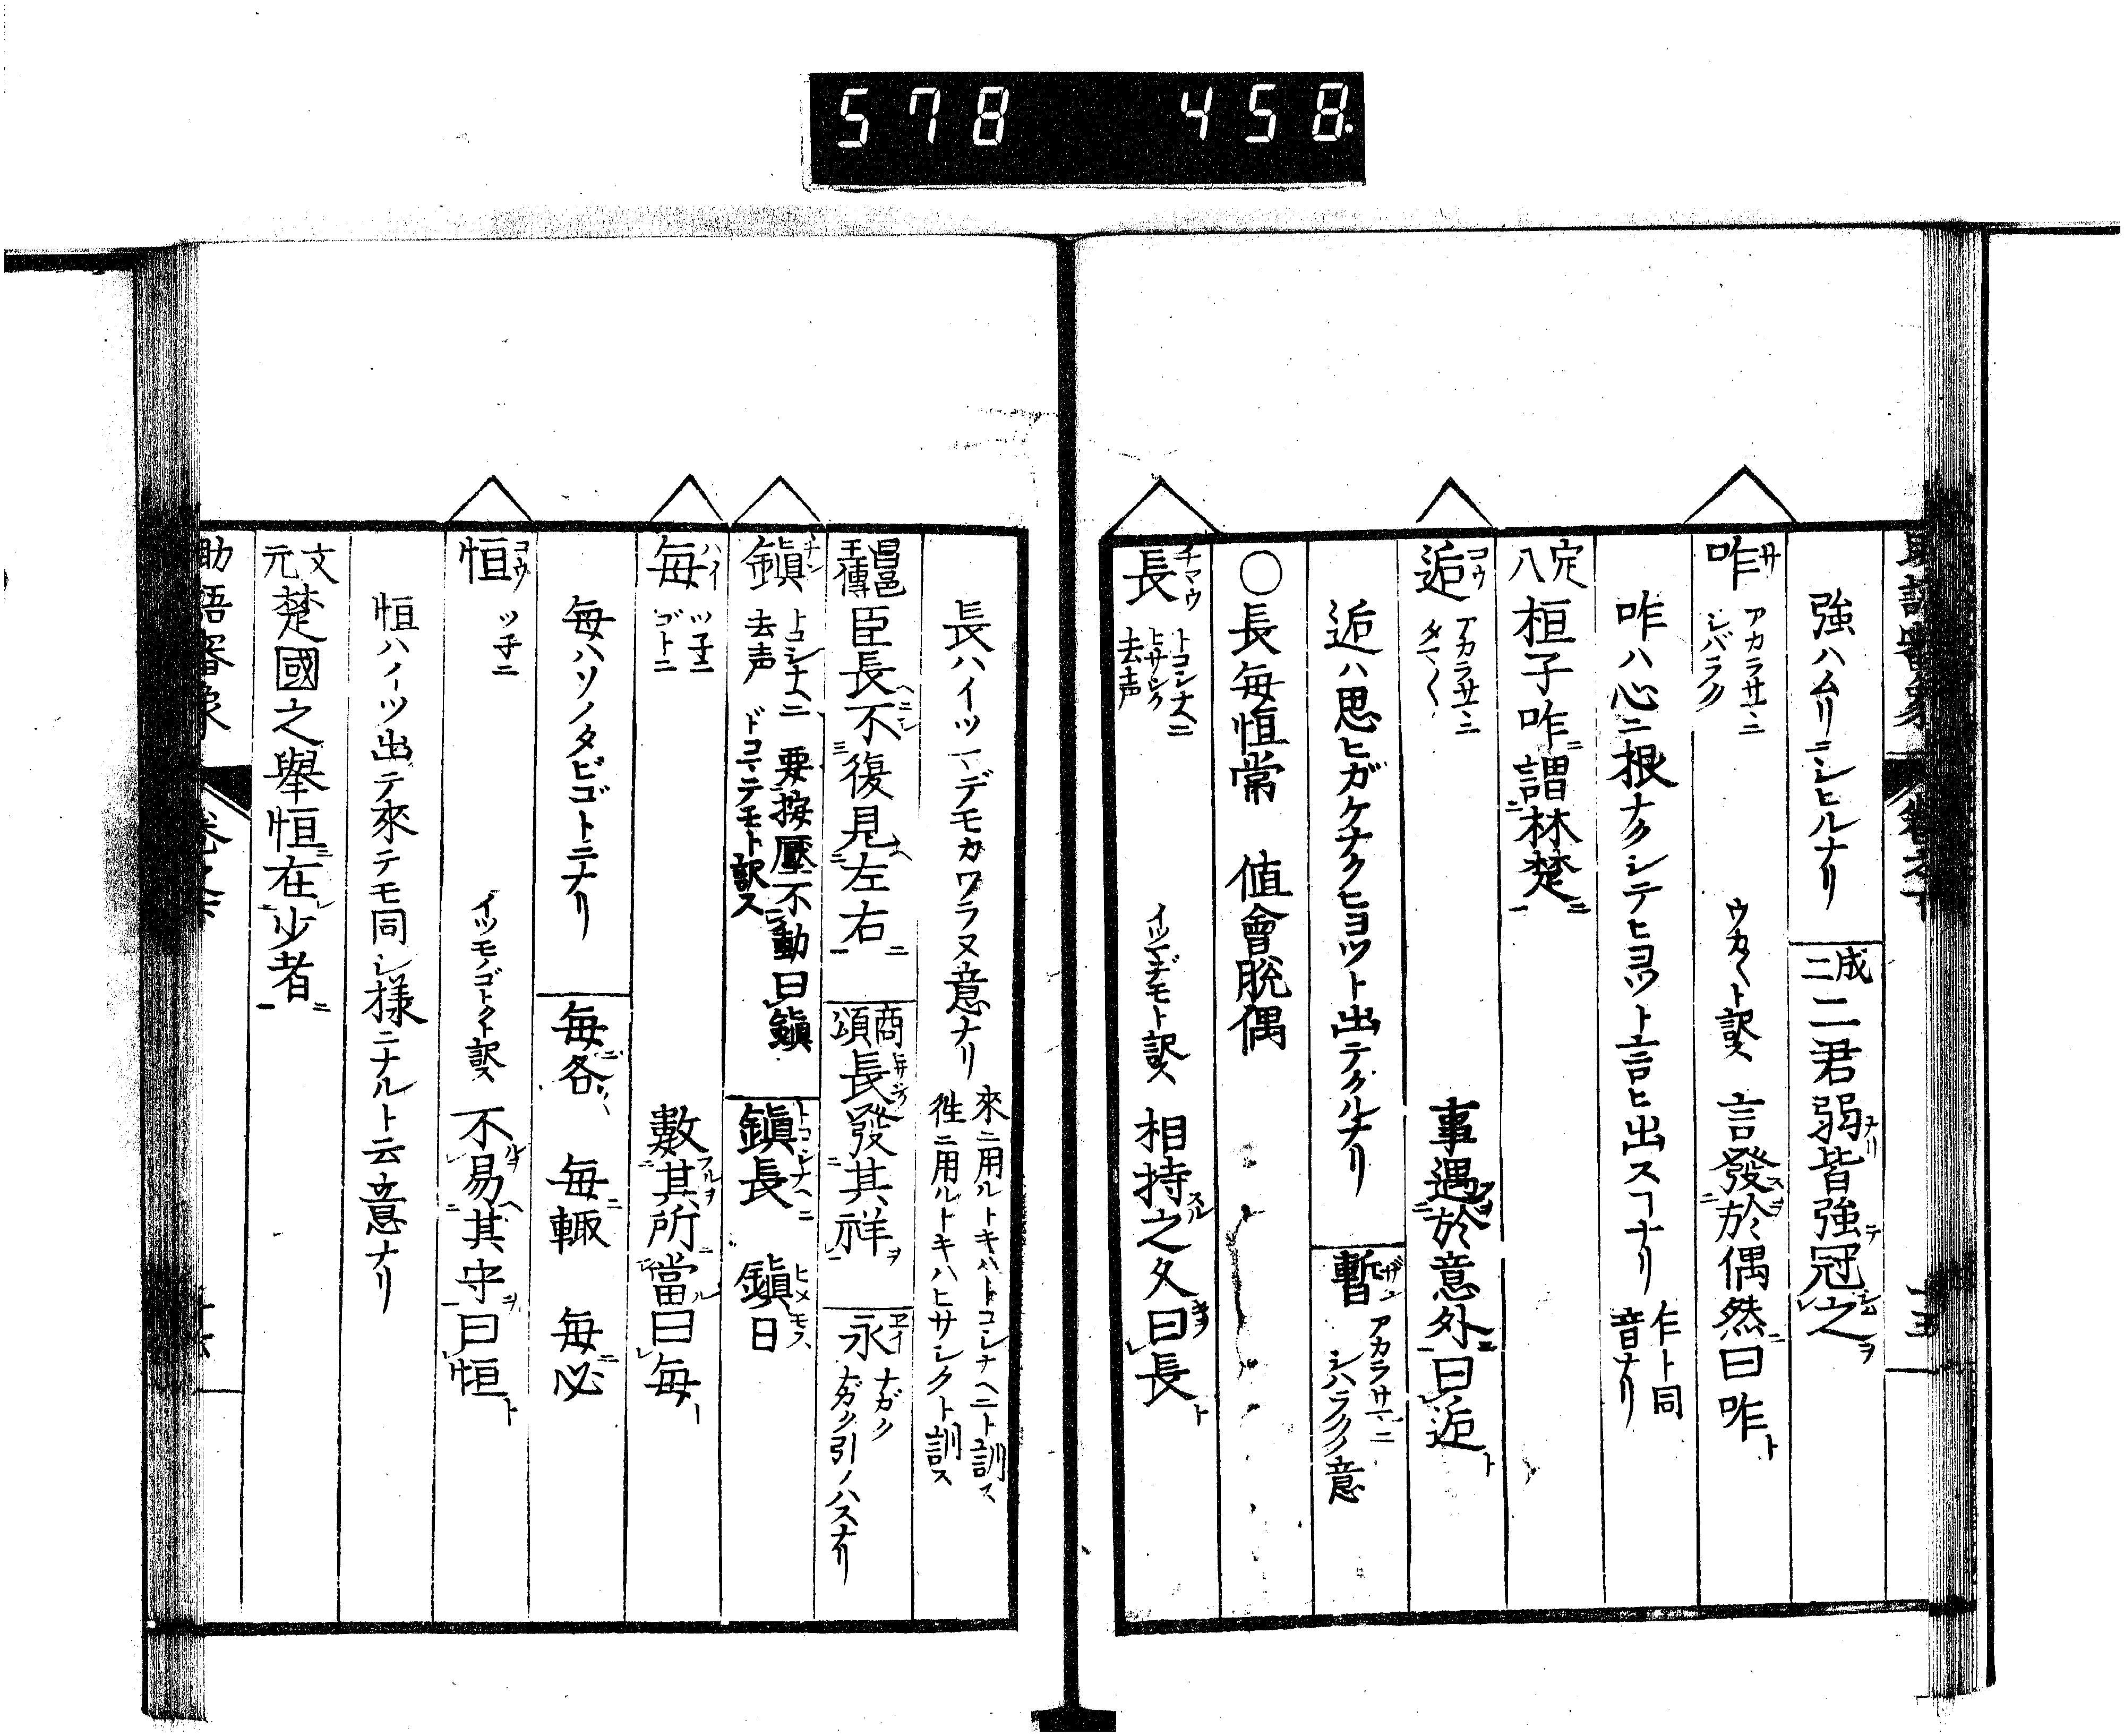 578 458.
強ハムリニシヒルナリ 成二 二君弱皆強冠之
咋 サ アカラサマニ シバラク ウカ〳〵ト訳ス 言發於偶然曰咋
咋ハ心ニ根ナクシテヒヨツト言ヒ出スヿナリ 乍ト同音ナリ
定八 桓子咋謂林楚
逅 コウ アカラサマニ タマ〳〵 事遇於意外曰逅
逅ハ思ヒガケナクヒヨツト出テクルナリ 暫 アカラサマニ シハラクノ意
○長毎恒常 値會脱偶
長 チヤウ トコシナヘニ ヒサシク 去声 イツマデモト訳ス 相持之久曰長
長ハイツマデモカワラヌ意ナリ 來ニ用ルトキハトコシナヘニト訓ス 徃ニ用ルトキハヒサシクト訓ス
昌邑王傳 臣長不復見左右 商頌 長發其祥 永 エイ ナガク ナガク引ノハスナリ
鎭 チン トコシナヘニ 去声 要按壓不動曰鎭 ドコマテモト訳ス 鎭長 トコシナヘニ 鎭日 ヒメモス
毎 ハイ ツ子ニ ゴトニ 數其所當曰毎
毎ハソノタビゴトニナリ 毎各 毎輙 毎必
恒 コウ ツ子ニ イツモノゴトクト訳ス 不易其守曰恒
恒ハイツ出テ來テモ同シ様ニナルト云意ナリ
文元 楚國之舉恒在少者
助語審象